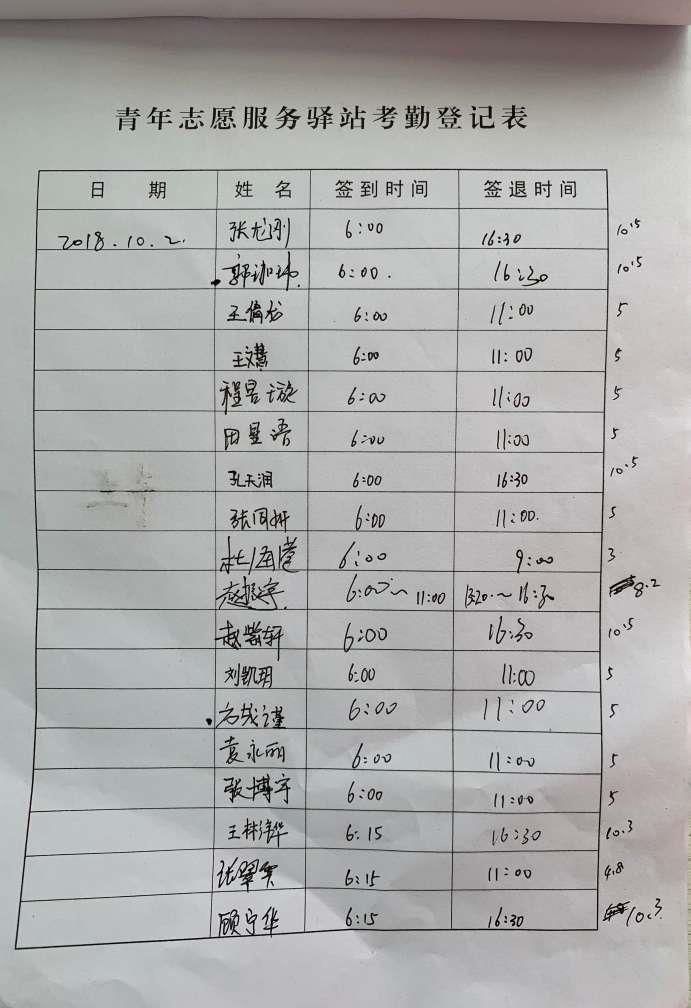 青年志愿服务驿站考勤登记表
日 期 姓 名 签到时间 签退时间
2018.10.2. 张龙刚 6:00 16:30 10.5
6:00. 16:30 10.5
6:00 11:00 5
王文慧 6:00 11:00 5
程昱璇 6:00 11:00 5
田星语 6:00 11:00 5
孔天润 6:00 16:30 10.5
张同妍 6:00 11:00. 5
6:00 9:00 3
赵振宇. 6:00~11:00 13:20.~16:30 8.2
赵紫轩 6:00 16:30 10.5
刘凯玥 6:00 11:00 5
6:00 11:00 5
袁永丽 6:00 11:00 5
张博宇 6:00 11:00 5
6:15 16:30 10.3
张翠笑 6:15 11:00 4.8
顾宁华 6:15 16:30 10.3